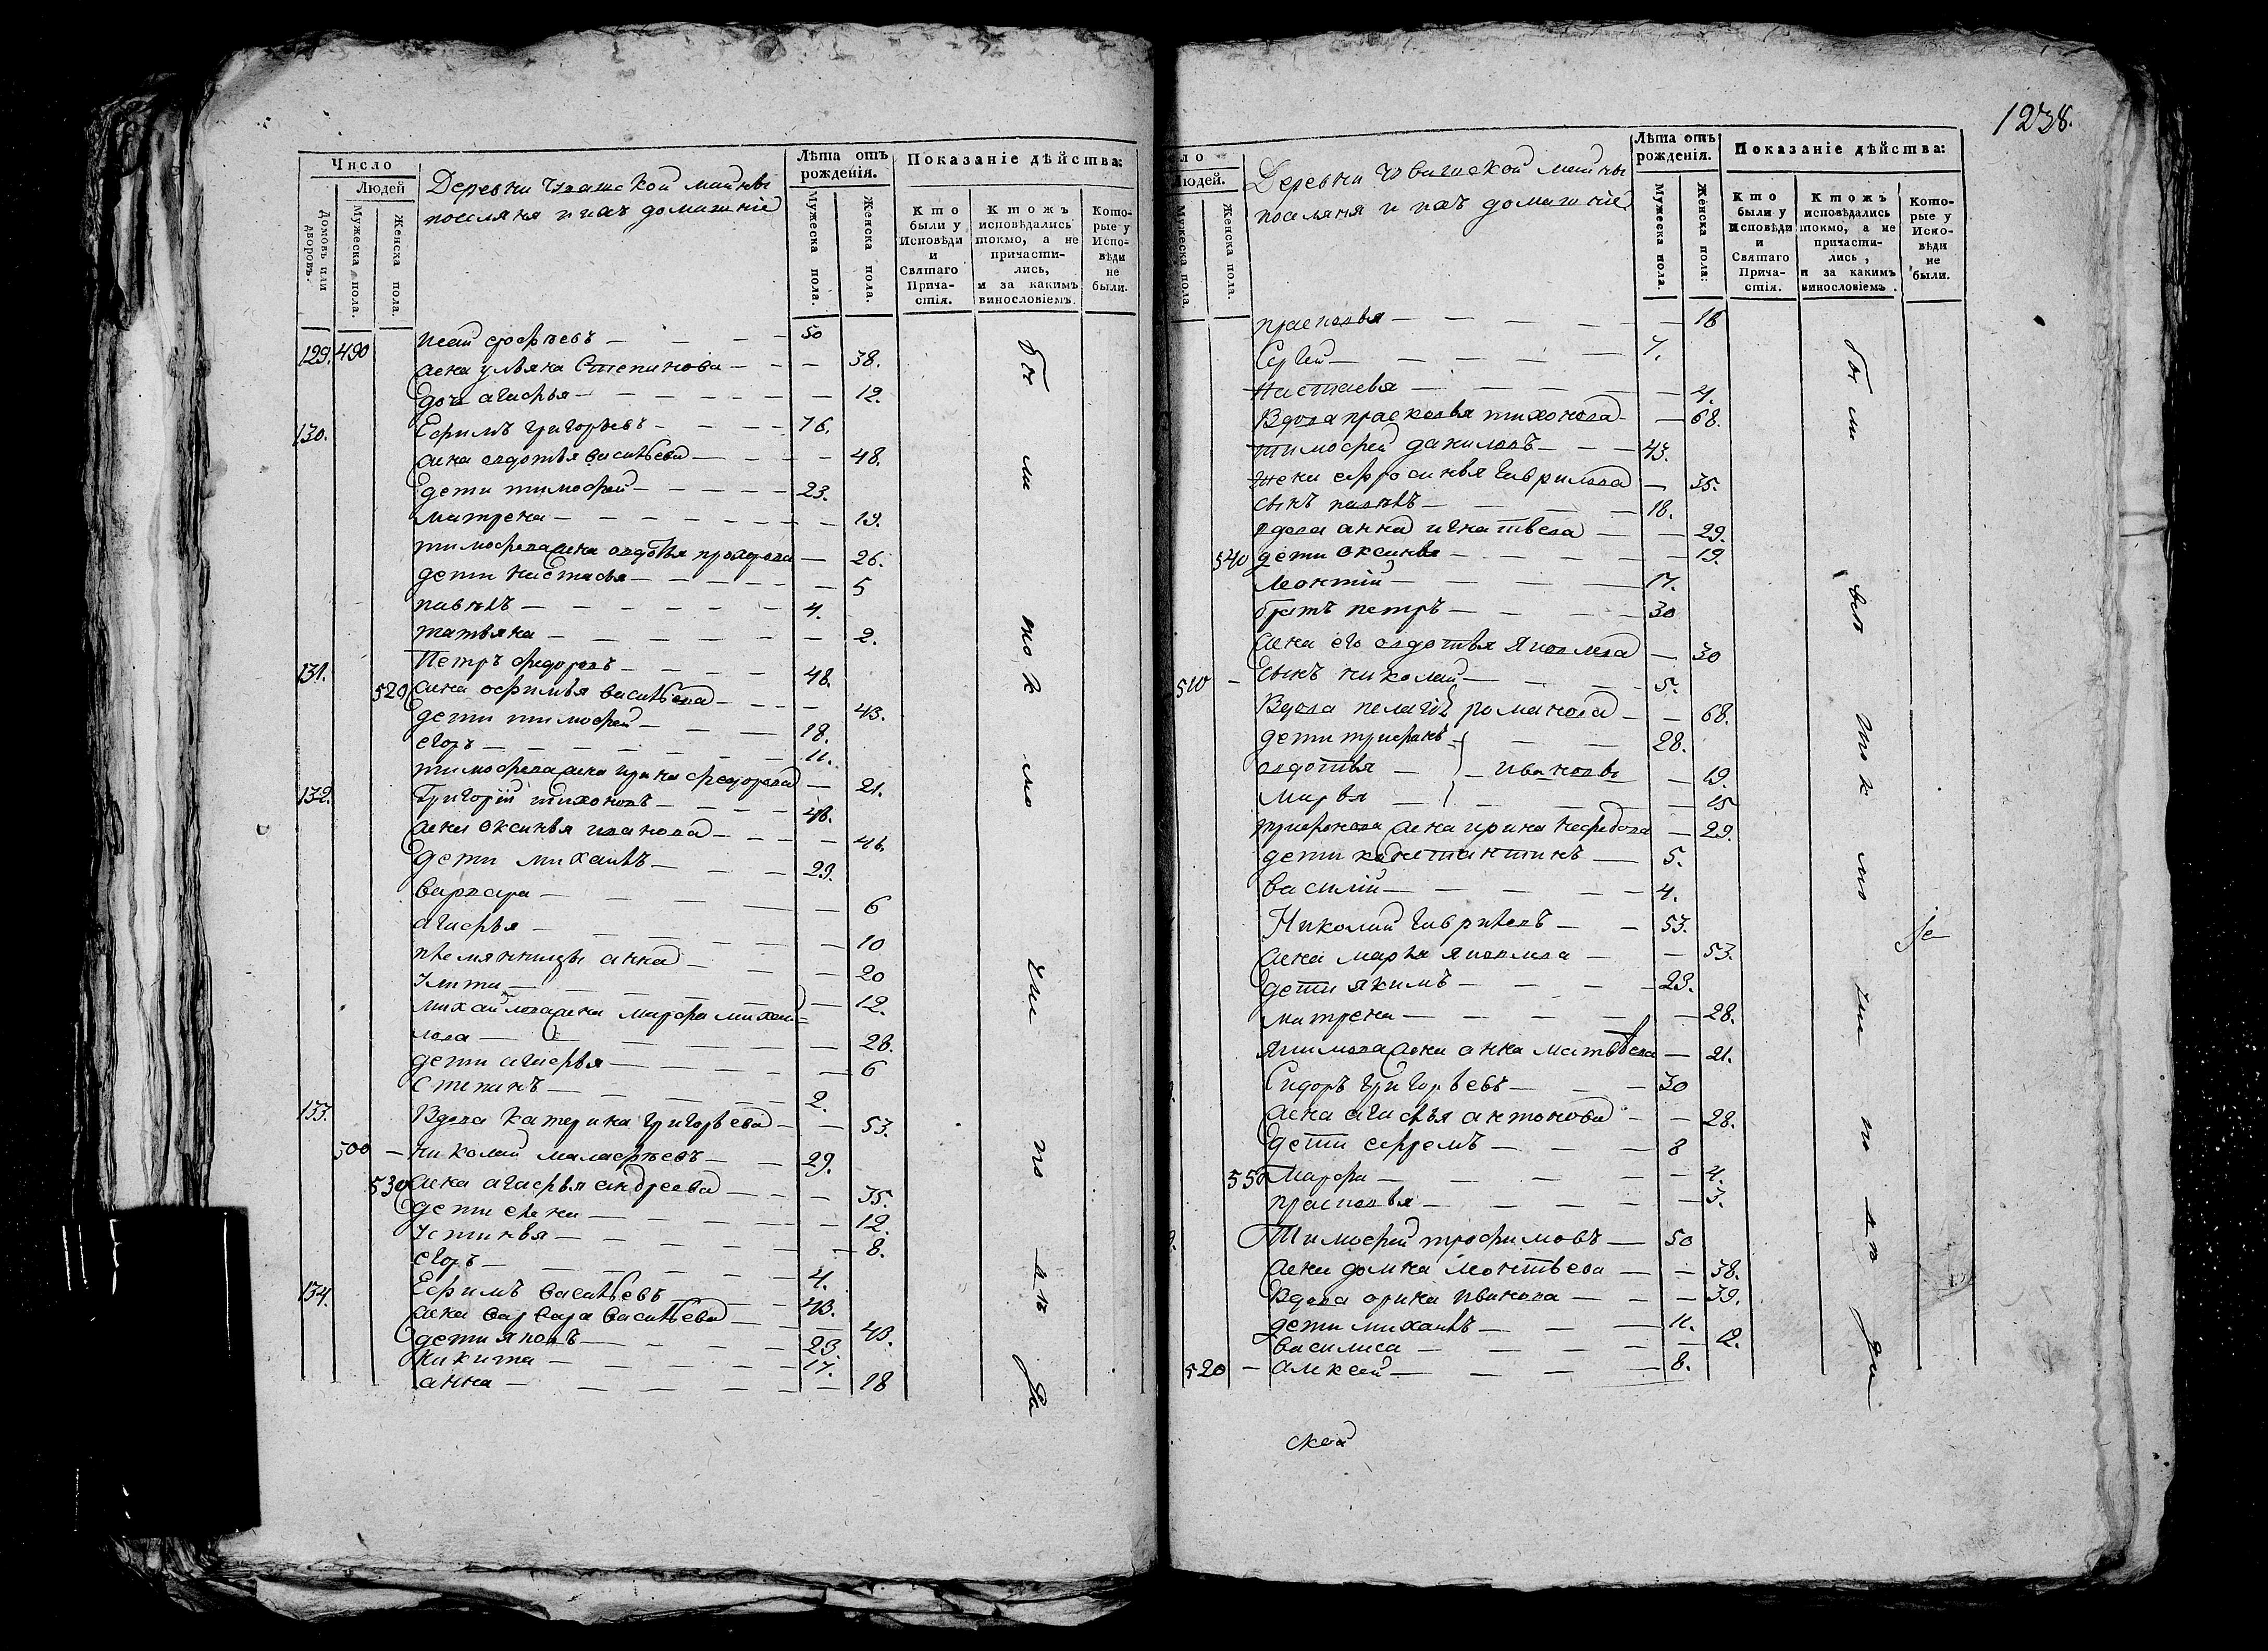 1238.
Число
Людей
Домовъ или дворовъ.
Мужеска пола.
Женска пола.
Деревни Чувашской майны
поселяня и ихъ домашнiе
Лѣта отъ рожденiя.
Мужеска пола.
Женска пола.
Показанiе дѣйства:
Кто были у Исповѣди и Святаго Прича-стiя.
Ктожъ исповѣдались токмо, а не причасти-лись, и за какимъ винословiемъ.
Кото-рые у Испо-вѣди не были.
129. 490 50
жена ульяна Степанова — 38.
дочь агафья — 12.
130. Ефимъ григорьевъ — 76.
жена овдотья василѣева — 48.
дети тимофей — 23.
матрена — 19.
тимофева жена овдотья — 26.
дети настасья — 5
павелъ — 4.
татьяна — 2.
131. Петръ федоровъ — 48.
520 жена офимья василѣева — 43.
дети тимофей — 18.
егоръ — 11.
тимофева жена ирина федорова — 21.
132. Григорiй тихоновъ — 48.
жена оксинья иванова — 46.
дети михаилъ — 29.
варвара — 6
агафья — 10
племянницы анна — 20
12.
михайлова жена марфа михаи=
лова — 28.
дети агафья — 6
степанъ — 2.
133. Вдова катерина григорьева — 53.
500 — николай — 29.
530 жена агафья андреева — 35.
дети елена — 12.
устинья — 8.
егоръ — 4.
134. Ефимъ василѣевъ — 43.
жена варвара василѣева — 43.
дети яковъ — 23.
никита — 17.
анна — 18
бы
ли
ток
мо
у
ис
по
вѣ
ди
ло
Людей.
Мужеска пола.
Женска пола.
Деревни Чувашской майны
поселяня и ихъ домашнiе
Лѣта отъ рожденiя.
Мужеска пола.
Женска пола:
Показанiе дѣйства:
Кто были у Исповѣди и Святаго Прича-стiя.
Ктожъ исповѣдались токмо, а не причасти-лись, и за какимъ винословiемъ.
Кото-рые у Испо-вѣди не были.
прасковья — 18
Сергей — 7.
Настасья — 4.
Вдова прасковья тихонова — 68.
тимофей даниловъ — 43.
жена ефросинья гаврилова — 35.
сынъ павелъ — 18.
вдова анна игнатьева — 29.
540 дети оксинья — 19.
леонтiй — 17.
братъ петръ — 30
жена его овдотья яковлева — 30
510 — сынъ николай — 5.
Вдова пелагѣя романова — 68.
дети трифонъ — 28.
овдотья — ивановы — 19.
марья — 15
трифонова жена ирина нефедова — 29.
дети константинъ — 5.
василiй — 4.
Николай гавриловъ — 53.
жена марья яковлева — 53.
дети якимъ — 23.
матрена — 28.
якимова жена анна матвѣева — 21.
Сидоръ григорьевъ — 30
жена агафья антонова — 28.
дети ефремъ — 8
550 Марфа — 4.
прасковья — 3.
Тимофей трофимовъ — 50
жена домна леонтьева — 38.
Вдова орина иванова — 39.
дети михаилъ — 11.
василиса — 12.
520 — алексей — 8.
бы ли
ток
мо
по
вѣ
ди
ской